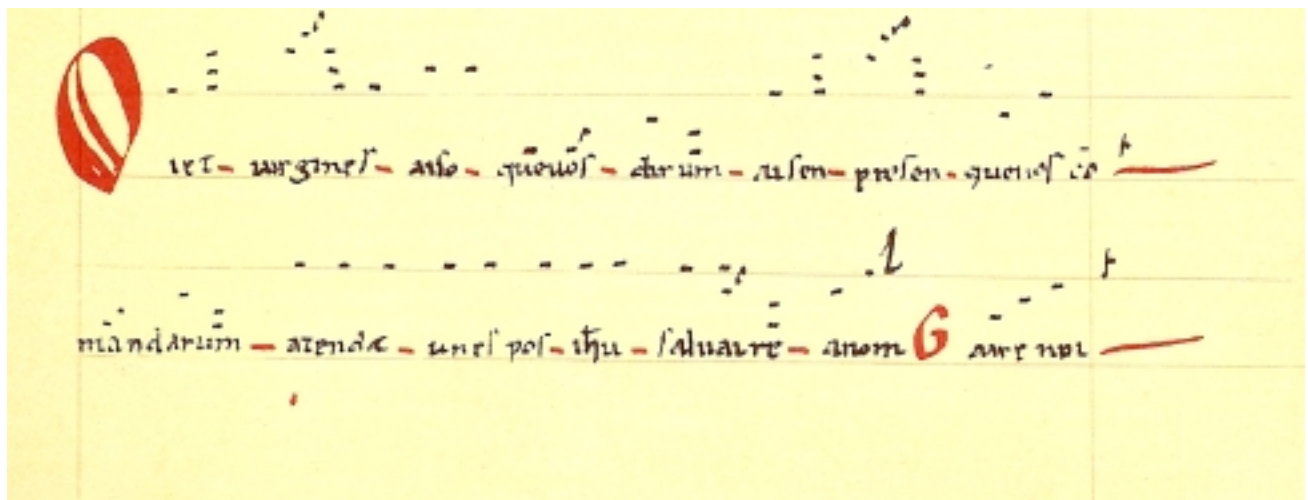 Oiet - uirgines - aiso - que uos - dirum - aisen - presen - que uos co
mandarum - atendæ - unes pos - ihu - saluaire - anom Gaire noi